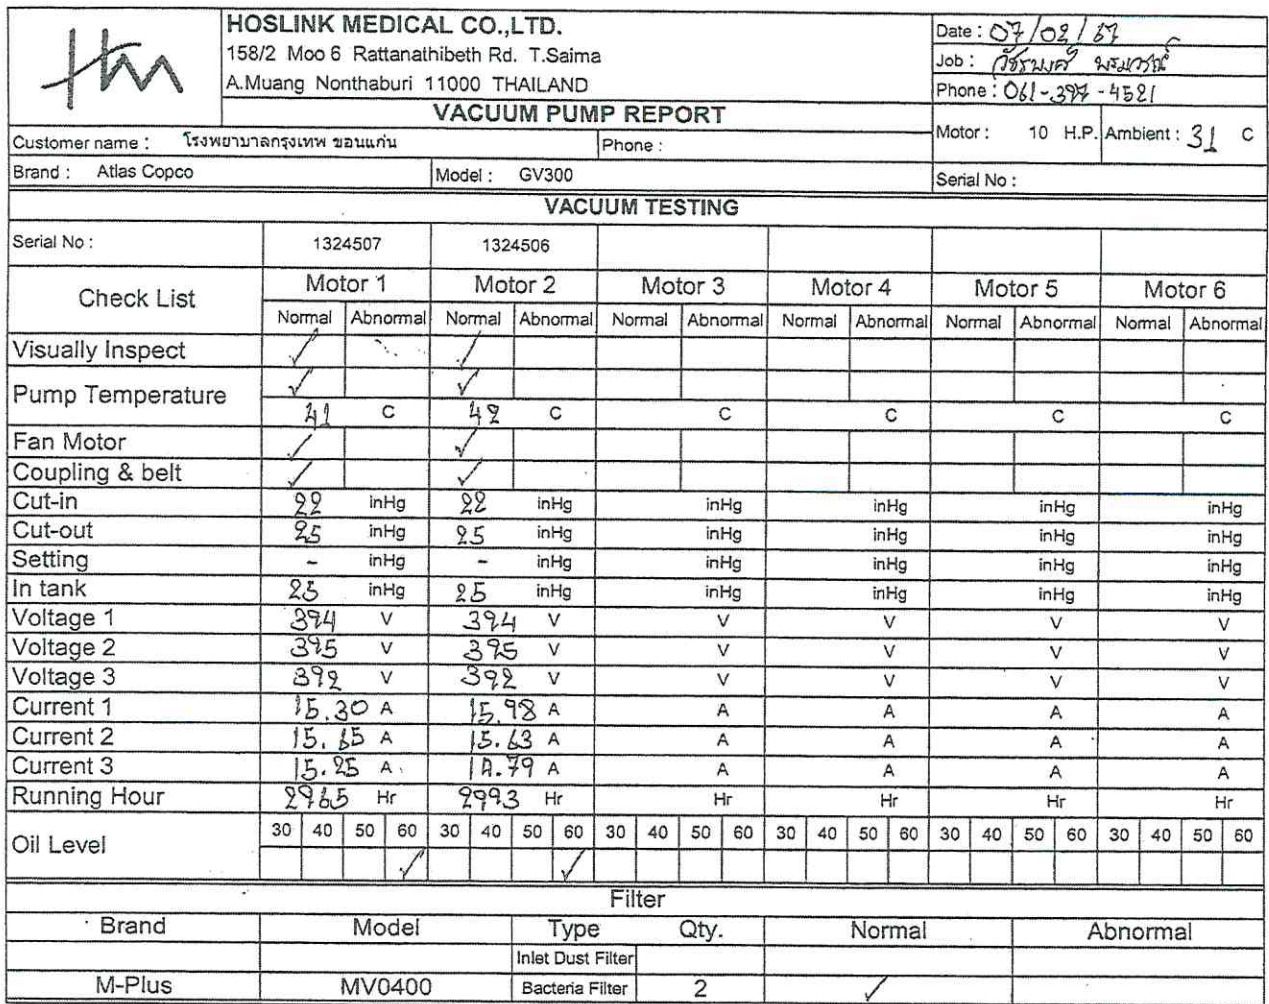 Hm
HOSLINK MEDICAL CO.,LTD.
158/2 Moo 6 Rattanathibeth Rd. T.Saima
A.Muang Nonthaburi 11000 THAILAND
Date : 07/02/67
Job :
Phone : 061-397-4521
VACUUM PUMP REPORT
Customer name : โรงพยาบาลกรุงเทพ ขอนแก่น Phone : Motor : 10 H.P. Ambient : 31 C
Brand : Atlas Copco Model : GV300 Serial No :
VACUUM TESTING
Serial No : 1324507 1324506
Check List Motor 1 Motor 2 Motor 3 Motor 4 Motor 5 Motor 6
Normal Abnormal Normal Abnormal Normal Abnormal Normal Abnormal Normal Abnormal Normal Abnormal
Visually Inspect ✓ ✓
Pump Temperature ✓ ✓
41 C 42 C C C C C
Fan Motor ✓ ✓
Coupling & belt ✓ ✓
Cut-in 22 inHg 22 inHg inHg inHg inHg inHg
Cut-out 25 inHg 25 inHg inHg inHg inHg inHg
Setting - inHg - inHg inHg inHg inHg inHg
In tank 25 inHg 25 inHg inHg inHg inHg inHg
Voltage 1 394 V 394 V V V V V
Voltage 2 395 V 395 V V V V V
Voltage 3 392 V 392 V V V V V
Current 1 15.30 A 15.98 A A A A A
Current 2 15.65 A 15.63 A A A A A
Current 3 15.25 A 14.79 A A A A A
Running Hour 2965 Hr 2993 Hr Hr Hr Hr Hr
Oil Level 30 40 50 60 30 40 50 60 30 40 50 60 30 40 50 60 30 40 50 60 30 40 50 60
✓ ✓
Filter
Brand Model Type Qty. Normal Abnormal
Inlet Dust Filter
M-Plus MV0400 Bacteria Filter 2 ✓